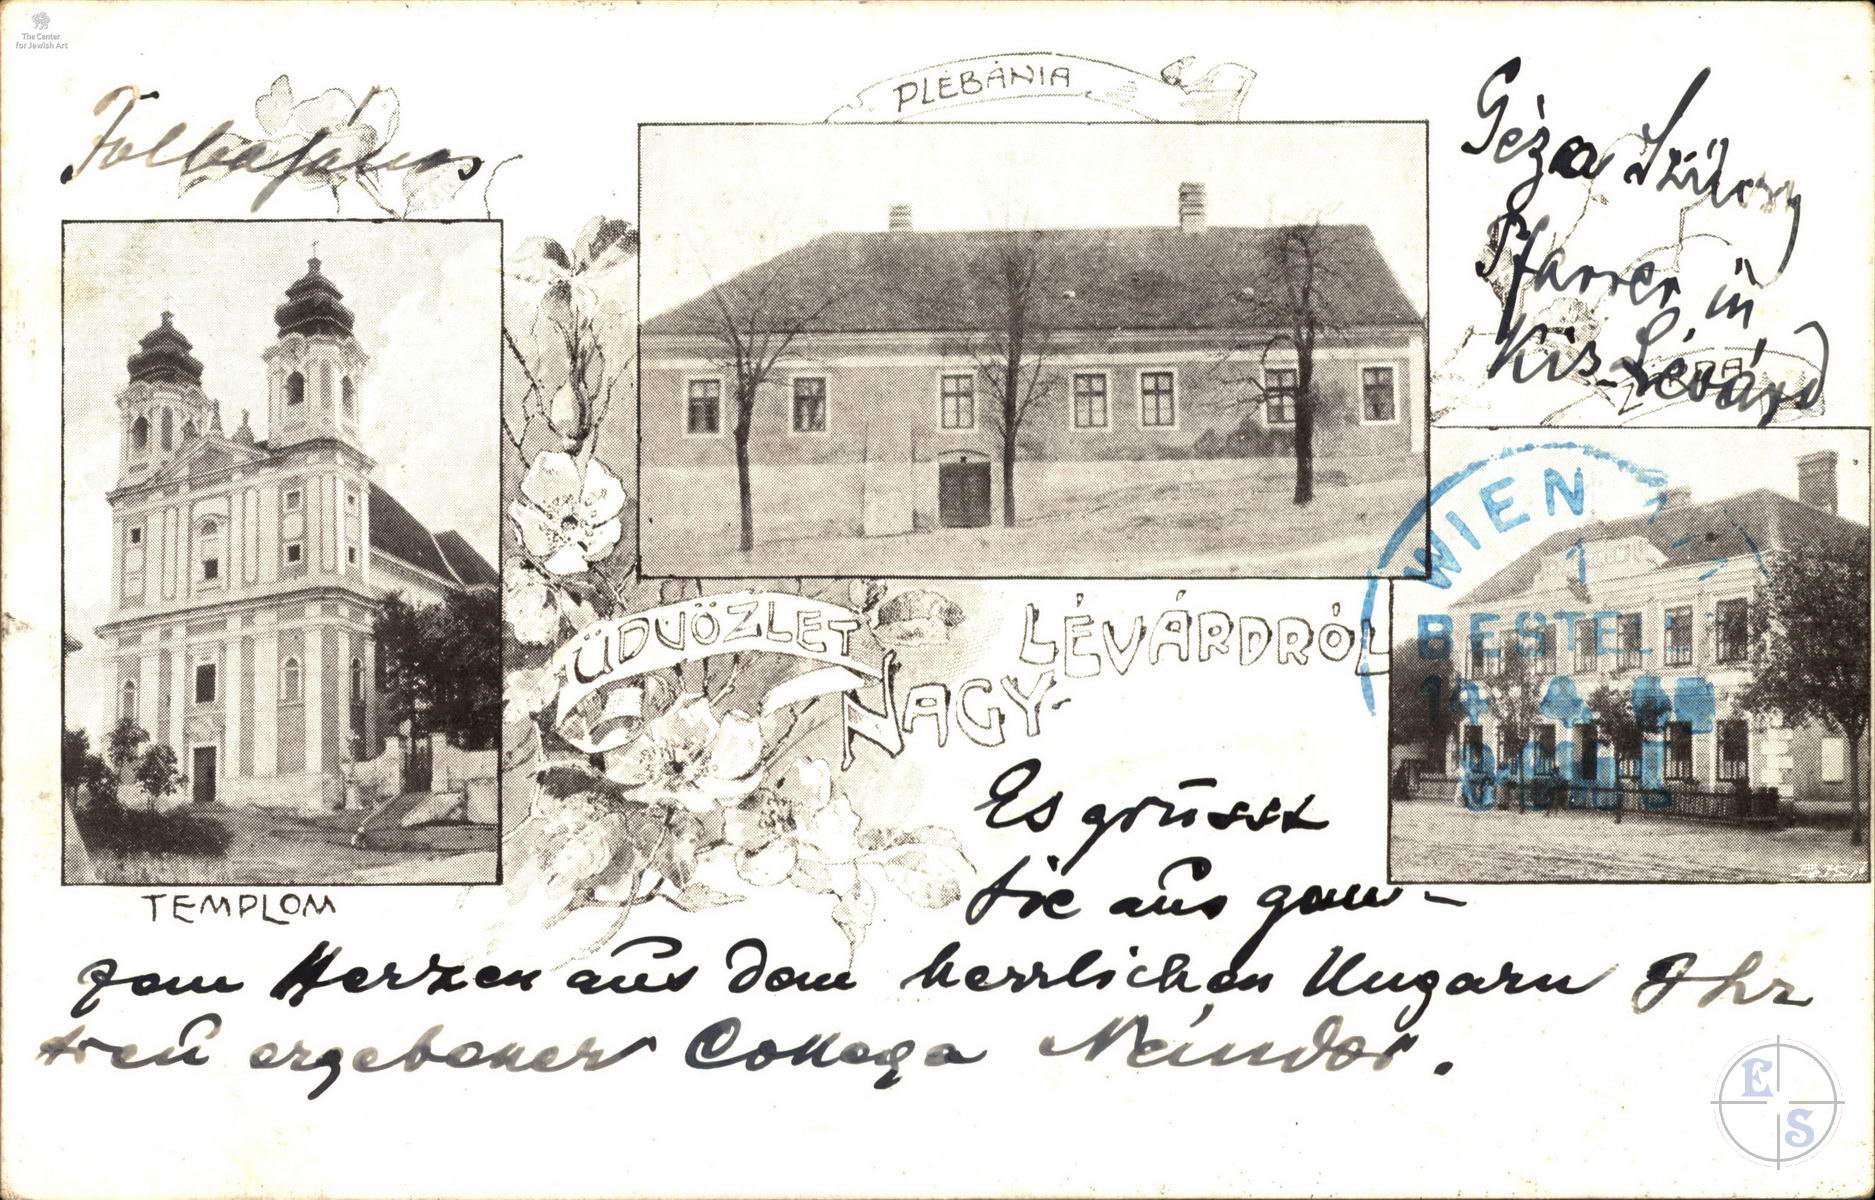 The Center
for Jewish Art
PLÉBÁNIA
Géza
Pfarrer in
Kis-Lévárd
TEMPLOM
ÜDVÖZLET
NAGY-
LÉVÁRDRÓL
WIEN
BESTELL
Es grüsst
Sie aus gan-
zem Herzen aus dem herrlichen Ungarn Ihr
treu ergebener Collega Nándor.
E
S